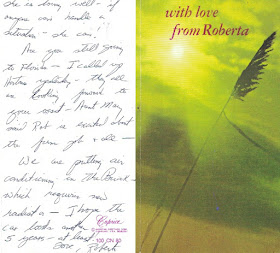 she is doing well - if
anyone can handle a
situation - she can!
Are you still going
to Florida - I called my
regularly - they all
are looking forward to
your visit - Aunt May
said Rob is excited about
the farm job & all -
We are putting air
conditioning in the Buick -
which requires new
radiator - I hope the
car lasts another
5 years - at least
Love, Roberta
Caprice
100 CN 80
with love
from Roberta